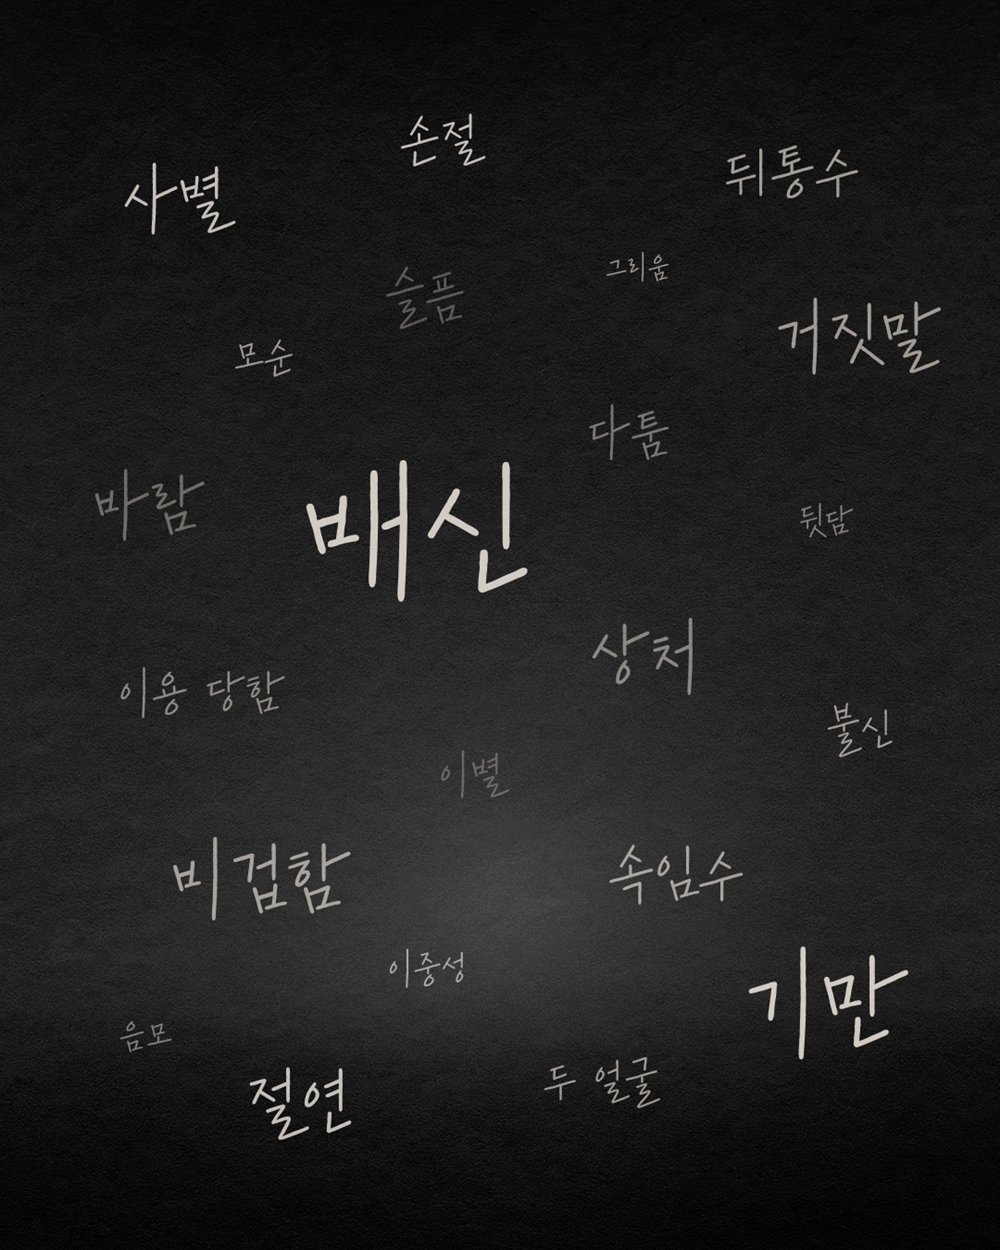 손절
사별
뒤통수
그리움
슬픔
모순
거짓말
다툼
바람
배신
뒷담
상처
이용 당함
불신
이별
비겁함
속임수
이중성
기만
음모
절연
두 얼굴